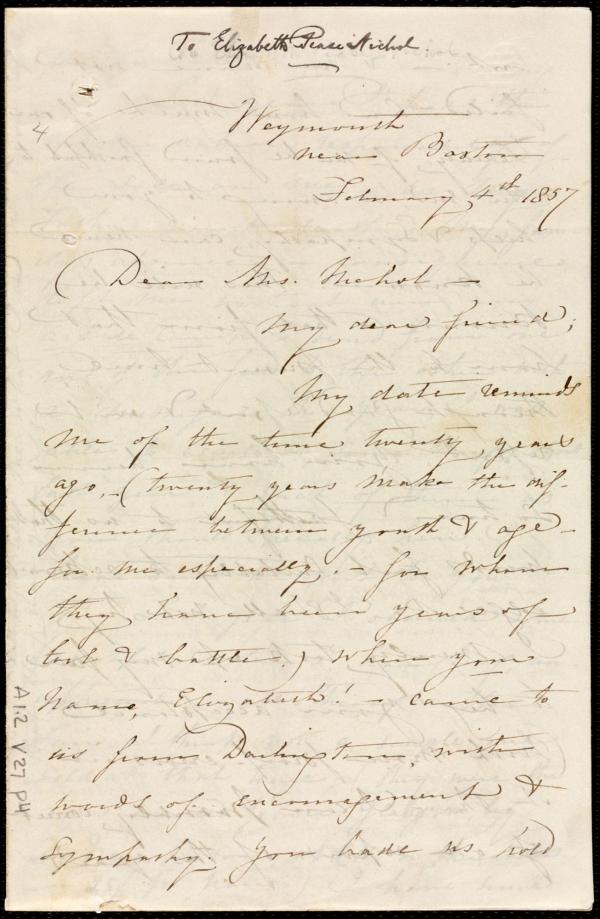 To Elizabeth Pease Nichol.
4
Weymouth
near Boston
February 4th 1857
Dear Mrs. Nichol –
My dear friend;
My date reminds
me of the time twenty years
ago, – (twenty years make the dif-
ference between youth & age –
for me especially. – for whom
they have been years of
toil & battle.) when your
name, Elizabeth! – came to
us from Darlington, with
words of encouragement &
sympathy. You bade us hold
A.1.2 V.27 p4